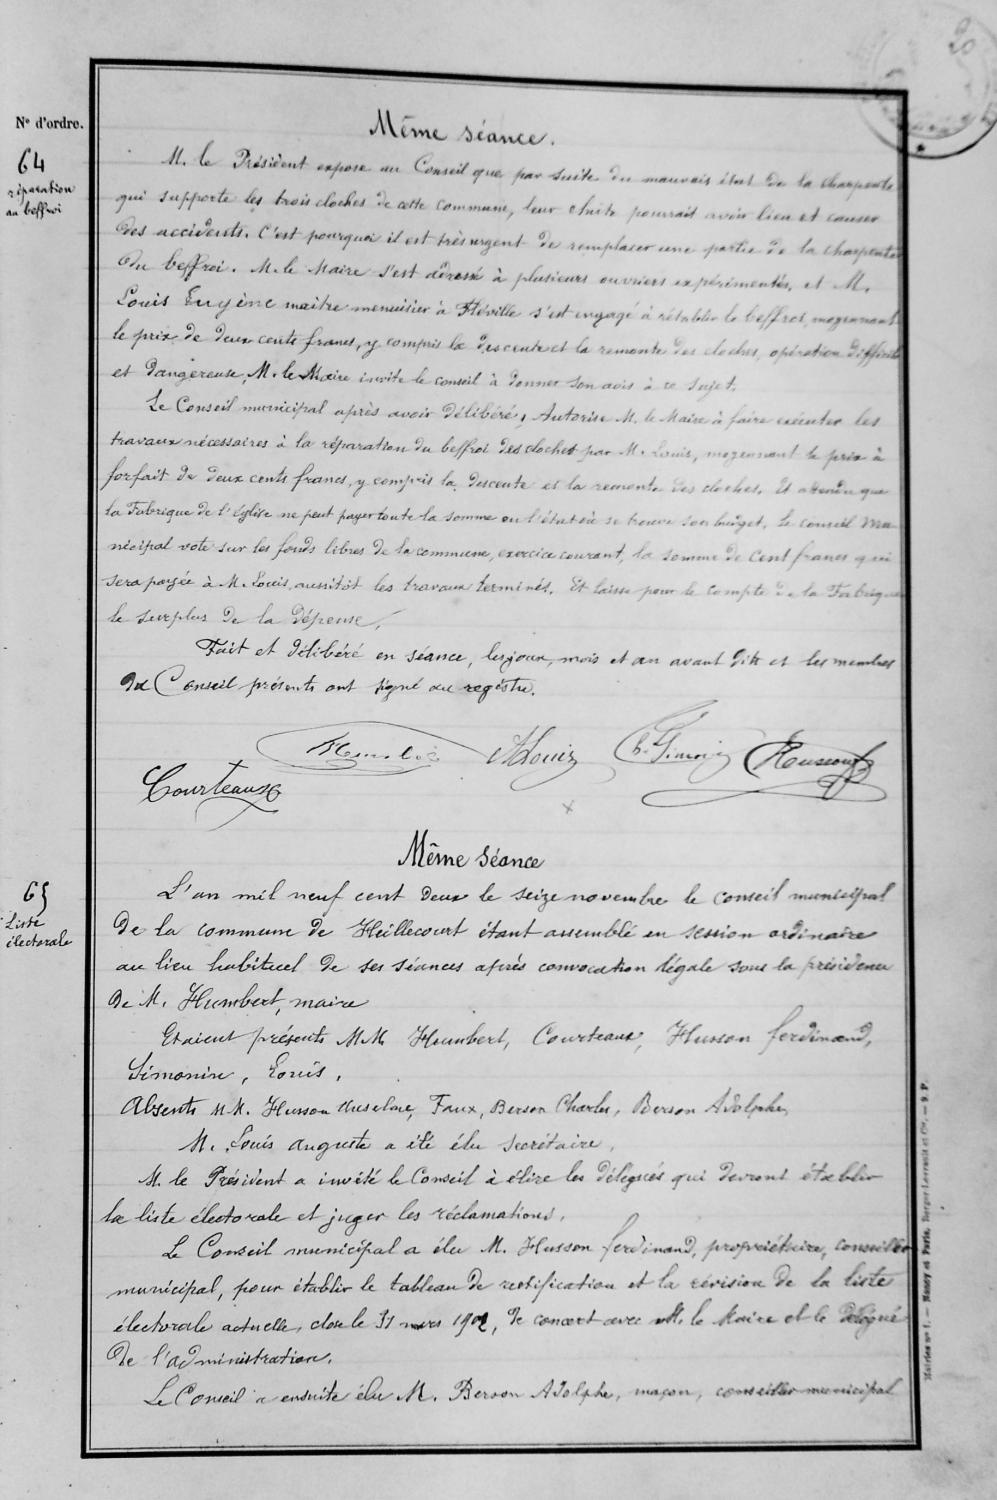 20
N° d'ordre.
Même séance.
64
réparation
au beffroi
M. le Président expose au Conseil que par suite du mauvais état de la charpente
qui supporte les trois cloches de cette commune, leur chute pourrait avoir lieu et causer
des accidents. C'est pourquoi il est très urgent de remplacer une partie de la charpente
du beffroi. M. le Maire s'est adressé à plusieurs ouvriers expérimentés, et M.
Louis Eugène maitre menuisier à Fléville s'est engagé à rétablir le beffroi, moyennant
le prix de deux cents francs, y compris la descente et la remonte des cloches, opération difficile
et dangereuse, M. le Maire invite le conseil à donner son avis à ce sujet.
Le Conseil municipal après avoir délibéré, Autorise M. le Maire à faire exécuter les
travaux nécessaires à la réparation du beffroi des cloches par M. Louis, moyennant le prix à
forfait de deux cents francs, y compris la descente et la remonte des cloches. Et attendu que
la Fabrique de l'église ne peut payer toute la somme en l'état où se trouve son budget, le conseil Mu
nicipal vote sur les fonds libres de la commune, exercice courant, la somme de cent francs qui
sera payée à M. Louis, aussitôt les travaux terminés. Et laisse pour le compte de la Fabrique
le surplus de la dépense.
Fait et délibéré en séance, les jour, mois et an avant dits et les membres
du Conseil présents ont signé au registre.
Humbert ALouis Ch. Simonin
Courteaux
Même séance
65
Liste
électorale
L'an mil neuf cent deux le seize novembre le conseil municipal
de la commune de Heillecourt étant assemblé en session ordinaire
au lieu habituel de ses séances après convocation légale sous la présidence
de M. Humbert, maire
Etaient présents MM Humbert, Courteaux, Husson ferdinand,
Simonin, Louis.
Absents M.M. Husson Anselme, Faux, Berson Charles, Berson Adolphe,
M. Louis auguste a été élu secrétaire.
M. le Président a invité le Conseil à élire les délégués qui devront établir
la liste électorale et juger les réclamations.
Le Conseil municipal a élu M. Husson ferdinand, propriétaire, conseiller
municipal, pour établir le tableau de rectification et la révision de la liste
électorale actuelle, close le 31 mars 1902, de concert avec M. le Maire et le Délégué
de l'administration.
Le Conseil a ensuite élu M. Berson Adolphe, maçon, conseiller municipal
Mairies n° 1. — Nancy et Paris. Berger-Levrault et Cie. — 9.P.